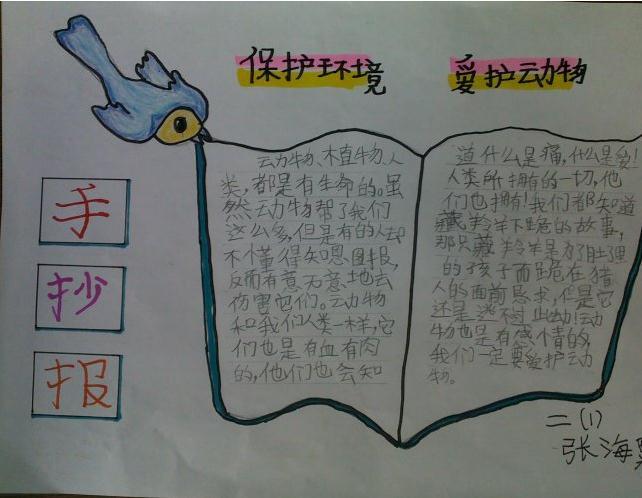 保护环境 爱护动物
手
抄
报
动物、植物、人
类,都是有生命的。虽
然动物帮了我们
这么多,但是有的人却
不懂得知恩图报,
反而有意无意地去
伤害它们。动物
和我们人类一样,它
们也是有血有肉
的,他们也会知
道什么是痛,什么是爱!
人类所拥有的一切,他
们也拥有!我们都知道
藏羚羊下跪的故事,
那只藏羚羊是为了肚里
的孩子而跪在猎
人的面前恳求,但是它
还是逃不过此劫!动
物也是有感情的,
我们一定要爱护动
物。
二(1)
张海